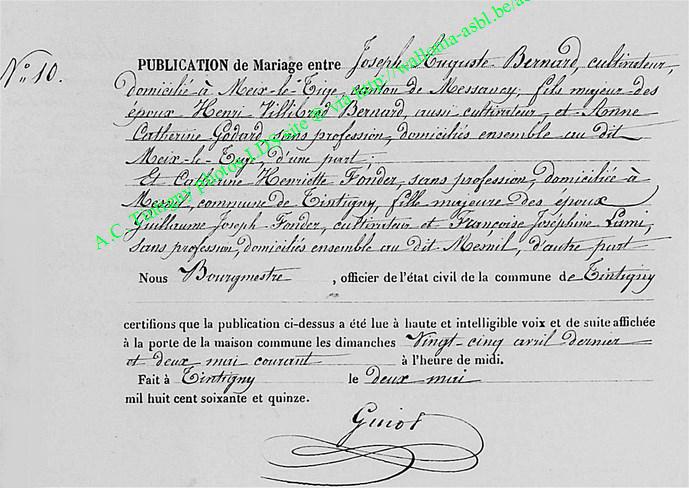 N° 10.
PUBLICATION de Mariage entre Joseph Auguste Bernard, cultivateur,
domicilié à Meix-le-Tige, canton de Messancy, fils majeur des
époux Henri Willibrod Bernard, aussi cultivateur, et Anne
Catherine Godard, sans profession, domiciliés ensemble au dit
Meix-le-Tige d'une part;
Et Catherine Henriette Fonder, sans profession, domiciliée à
Mesnil, commune de Tintigny, fille majeure des époux
Guillaume Joseph Fonder, cultivateur et Françoise Joséphine Lami,
sans profession, domiciliés ensemble au dit Mesnil, d'autre part
Nous Bourgmestre , officier de l'état civil de la commune de Tintigny
certifions que la publication ci-dessus a été lue à haute et intelligible voix et de suite affichée
à la porte de la maison commune les dimanches Vingt-cinq avril dernier
et deux mai courant à l'heure de midi.
Fait à Tintigny le deux mai
mil huit cent soixante et quinze.
Guiot
A.C. Tintigny photos LDS site @ via http://wallonia-asbl.be/as